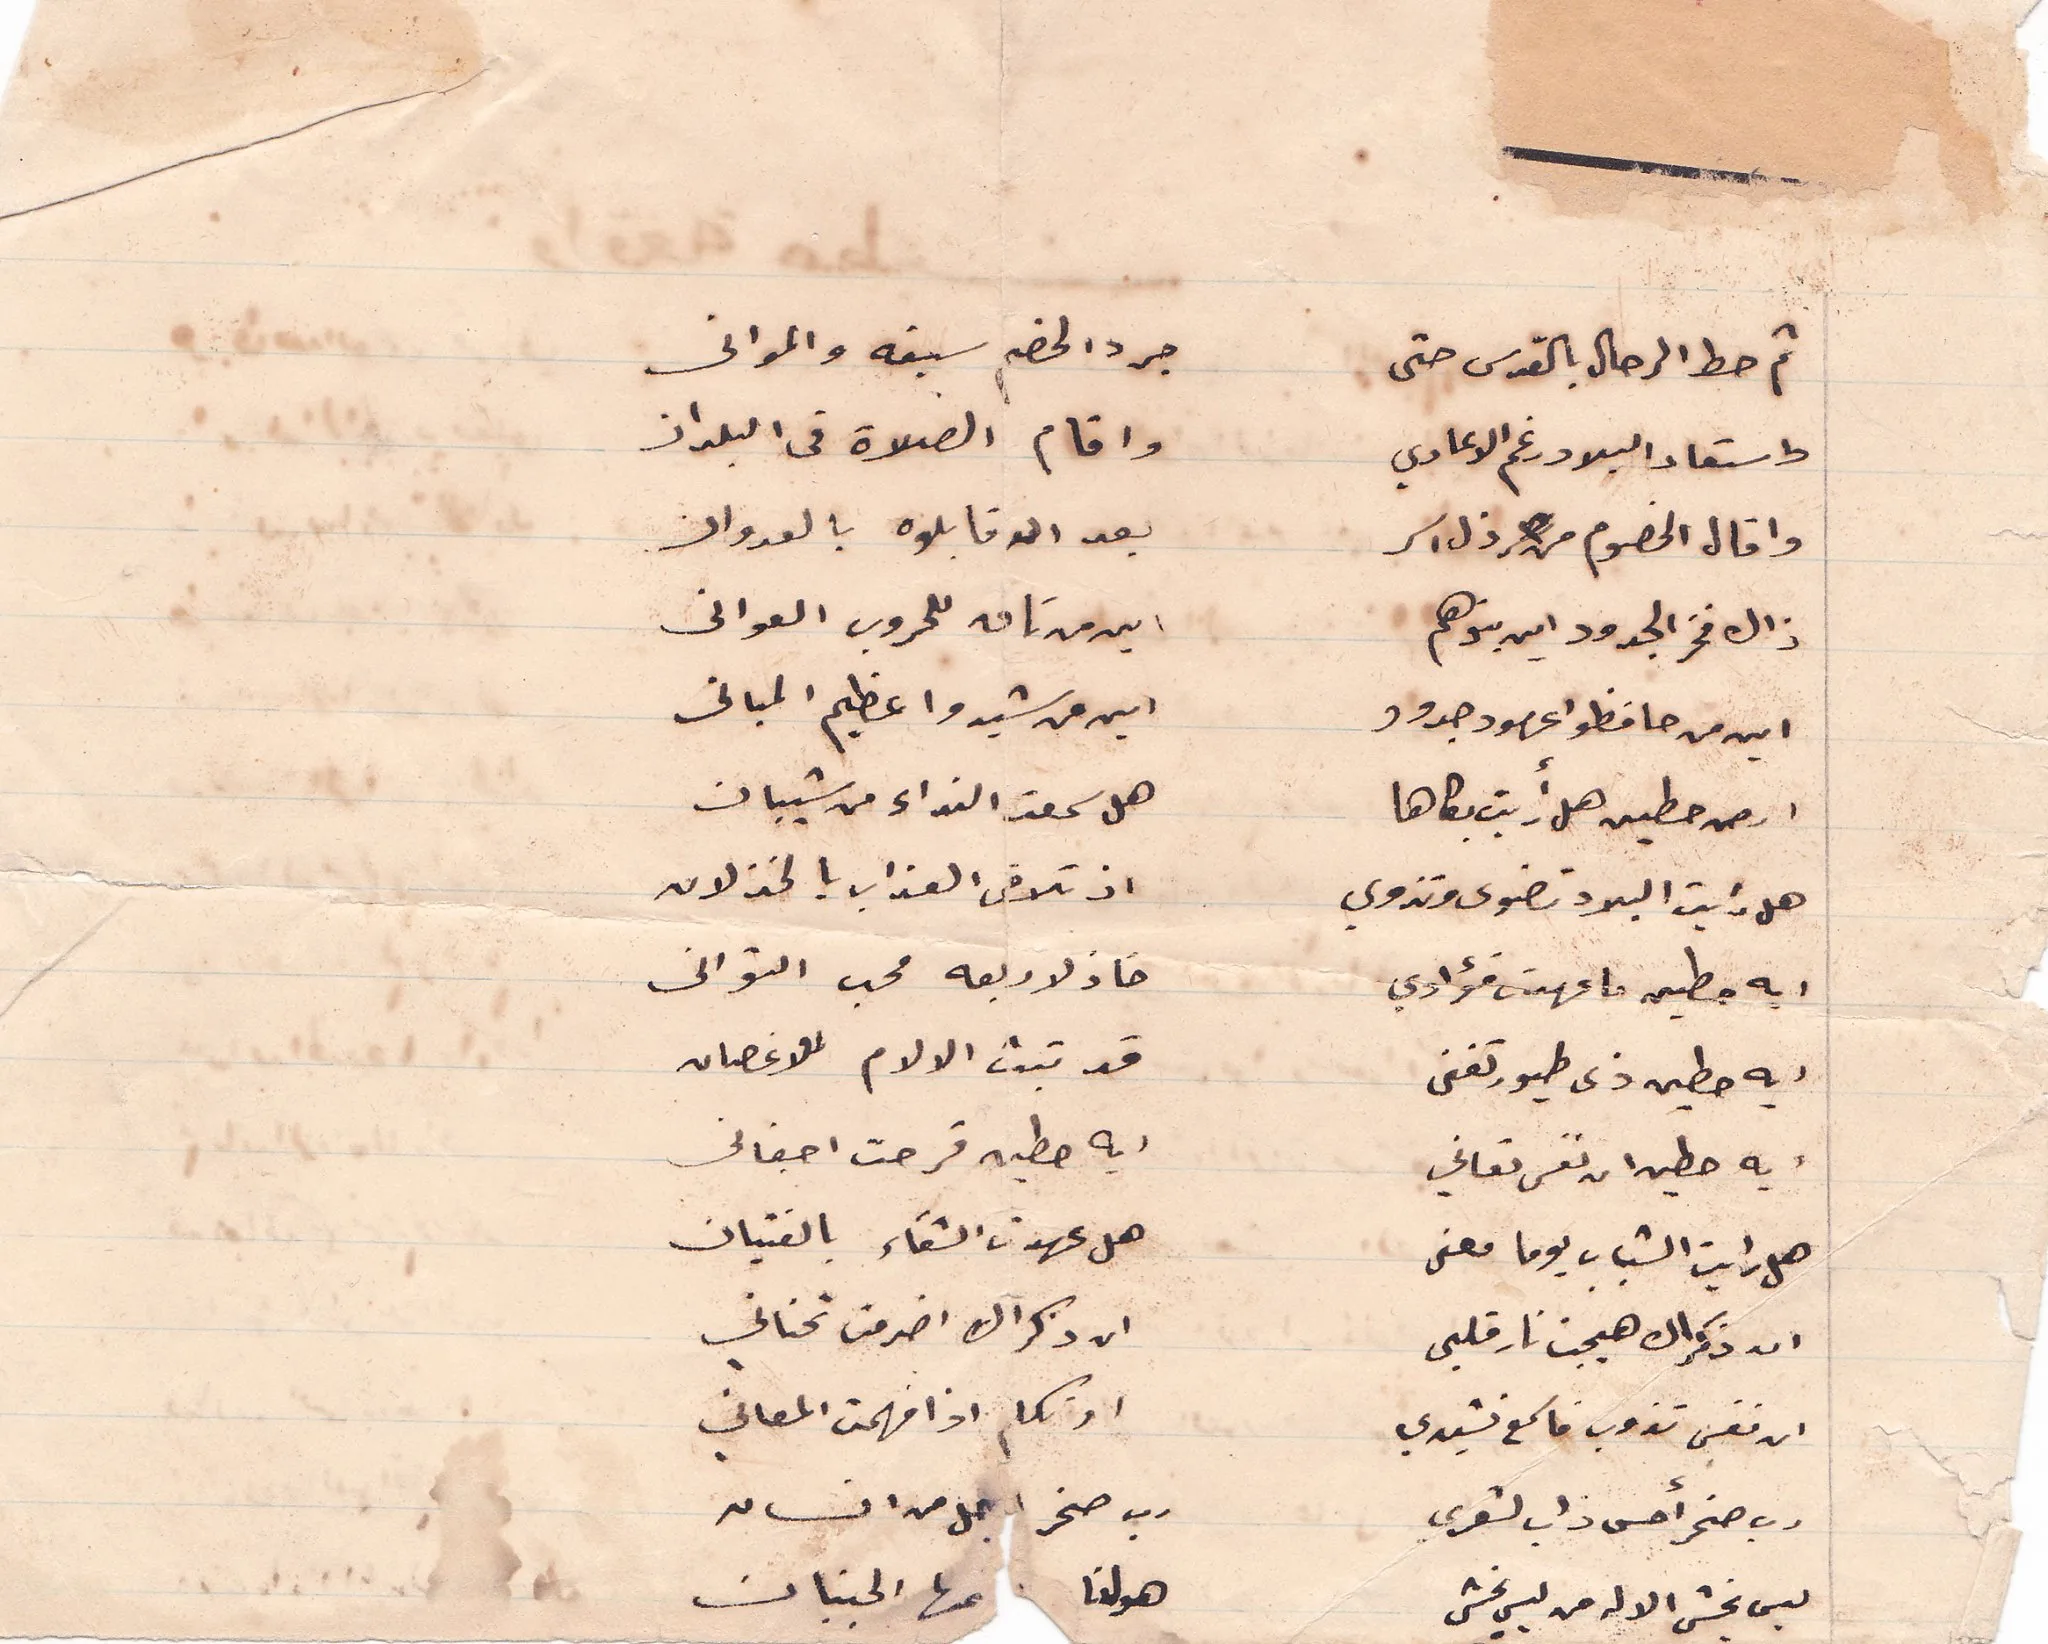 ثم حط الرحال بالقدس حتى جرد الخصم سيفه والموانى
واستعاد البلاد رغم الاعادي واقام الصلاة فى البلدان
واقال الخصوم من ذل اسر بعد ان قابلوه بالعدوان
ذاك فخر الجدود اين بنوهم اين من تاق للحروب العوانى
اين من حافظوا عهود جدود اين من شيدوا عظيم المبانى
ارض حطين هل رأيت بكاها هل سمعت النداء من شيبان
هل رايت البلاد تضوى وتذوي اذ تلاقى العذاب بالخذلان
ايه حطين ما عهدت فؤادي خاذلا ربعه محب التوانى
ايه حطين ذى طيور تغنى قد تبث الالام للاغصان
ايه حطين ان نفسى تعاني ايه حطين قرحت اجفانى
هل رايت الشباب يوما معنى هل عهدت الشقاء بالفتيان
ان ذكراك هيجت نار قلبى ان ذكراك اضرمت تحناني
ان نفسى تذوب فاسمع نشيدي او تكلم اذا فهمت المعاني
رب صخر أحس ذاب لشعرى رب صخر اجل من انسان
ليس يخشى الاله من ليس يخشى الجبان